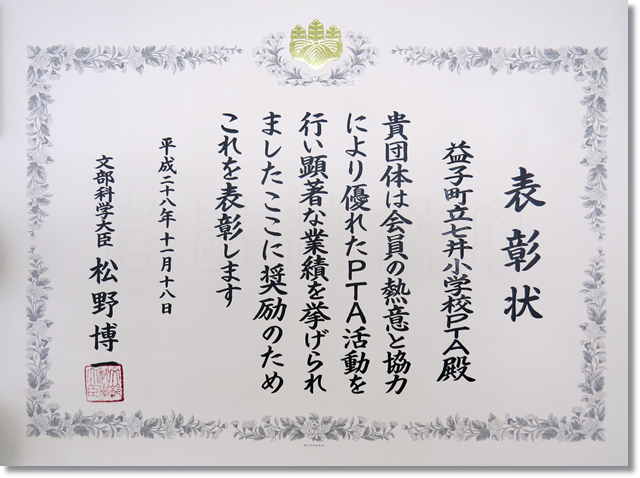 表彰状
益子町立七井小学校PTA殿
貴団体は会員の熱意と協力
により優れたPTA活動を
行い顕著な業績を挙げられ
ましたここに奨励のため
これを表彰します
平成二十八年十一月十八日
文部科学大臣 松野博一